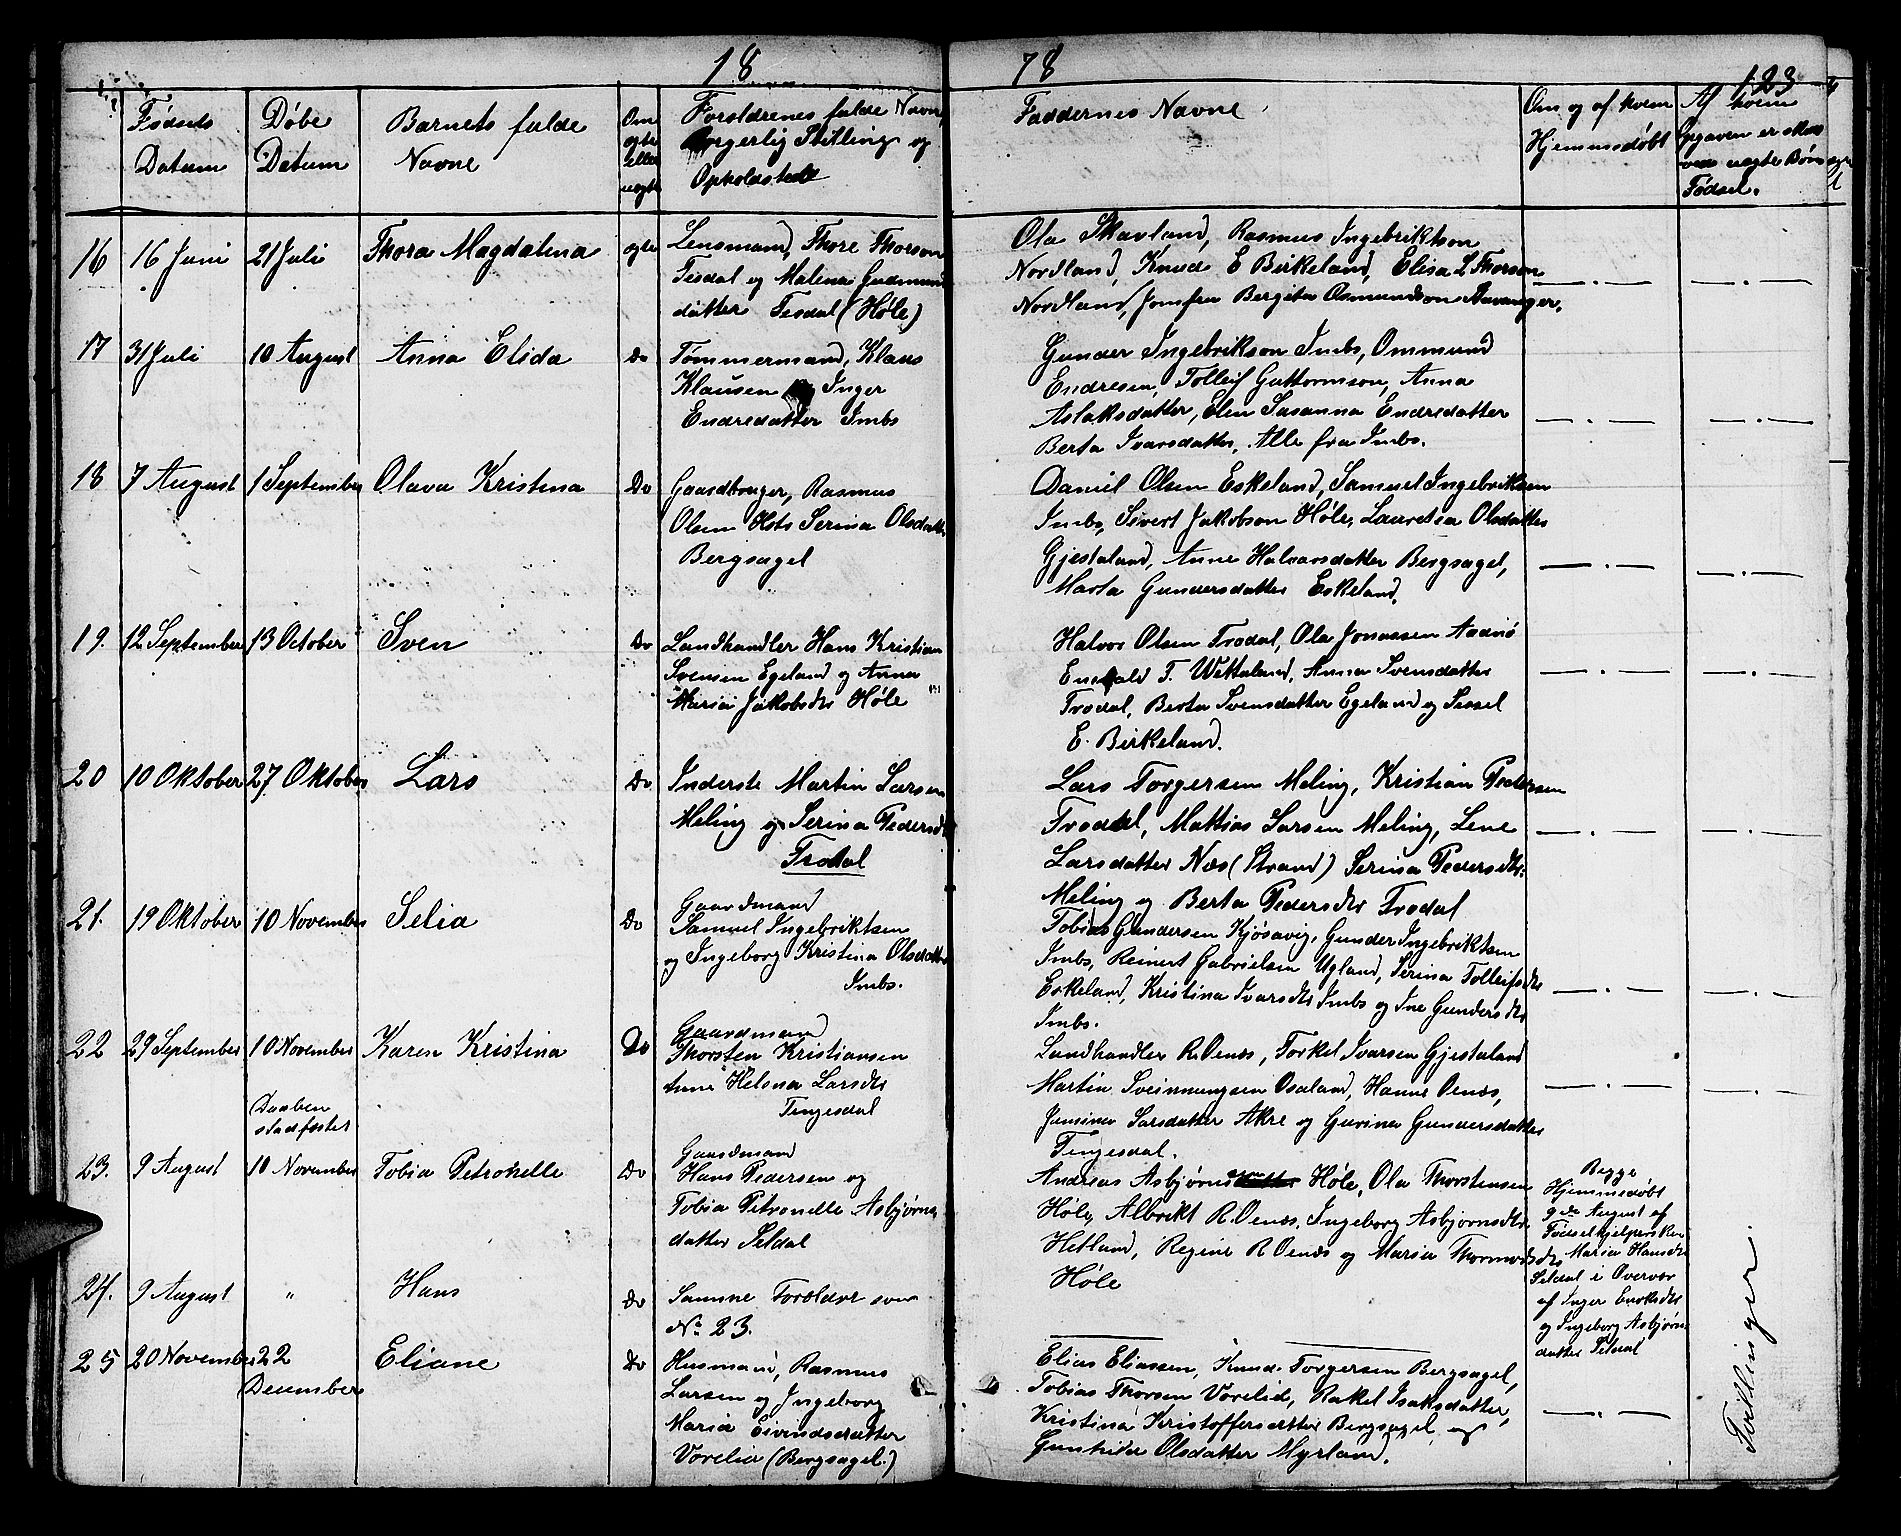 18 78
123
Fødsels Datum
Døbe Datum
Barnets fulde Navne
Om ægte eller uægte
Forældrenes fulde Navne, Borgerlig Stilling og Opholdsted
Faddernes Navne
Om og af hvem Hjemmedøbt
Af hvem Opgaven er skeet uægte Børns Fødsel.
16 16 Juni 21 Juli Thora Magdalena ægte
Lensmand, Thore Thorson
Tesdal og Malena Gudmund
datter Tesdal (Høle)
Ola Skavland, Rasmus Ingebrikson
Nordland, Knud E Birkeland, Elisa L Thorson
Nordland, Jomfru Bergita Osmundson Stavanger.
17 31 Juli 10 August Anna Elida Do
Tømmermand, Klaus
Klausen Inger
Endredatter Imbs
Gunder Ingebrikson Imbs, Ommund
Endresen, Tolleif Guttormson, Anna
Aslaksdatter, Elen Susanna Endredatter
Berta Ivarsdatter. Alle fra Imbs.
18 7 August 1 September Olava Kristina Do
Gaardbruger, Rasmus
Olsen Hots Serina Olsdatter
Bergsagel
Daniel Olsen Eskeland, Samuel Ingebriksen
Imbs, Sivert Jakobson Høle, Lauretsa Olsdatter
Gjestaland, Anne Halvarsdatter Bergsagel,
Marta Gundersdatter Eskeland.
19. 12 September 13 October Sven Do
Landhandler Hans Kristian
Svensen Egeland og Anna
Maria Jakobsdtr Høle
Halvor Olsen Trodal, Ola Jonassen Aadnø
Enevald T. Wetteland, Anna Svensdatter
Trodal, Berta Svensdatter Egeland og Sessel
E. Birkeland.
20 10 Oktober 27 Oktober Lars Do
Inderste Martin Larsen
Meling og Serina Pedersdtr
Trodal
Lars Torgersen Meling, Kristian Pedersen
Trodal, Mattias Larsen Meling, Lene
Larsdatter Næs (Strand) Serina Pedersdtr.
Meling og Berta Pedersdtr Trodal
21. 19 Oktober 10 November Selia Do
Gaardmand
Samuel Ingebriktsen
og Ingeborg Kristina Olsdatter
Imbs.
Tobias Gundersen Kjøsavig, Gunder Ingebriktsen
Imbs, Reinert Gabrielsen Ugland, Serina Tolleifsdtr
Eskeland, Kristina Ivarsdtr Imbs og Ine Gundersdtr
Imbs.
22 29 September 10 November Karen Kristina Do
Daaben
stadfæstet
Gaardmand
Thorsten Kristiansen
Anne Helena Larsdtr
Tengesdal
Landhandler R. Oenæs, Torkel Ivarsen Gjestaland
Martin Sveinungsen Osaland, Hanne Oenæs,
Larsdatter Akre og Gurina Gundersdatter
Tengesdal.
23. 9 August 10 November Tobia Petronelle Do
Gaardmand
Hans Pedersen og
Tobia Petronelle Asbjørns
datter Seldal
Andreas Asbjørnsen Høle, Ola Thorstensen
Høle, Albrikt R. Oenæs, Ingeborg Asbjørnsdtr.
Hetland, Regine R Oenæs og Maria Thormodsdtr
Høle
Begge
Hjemmedøbt
9de August af
Fødselhjelpersken
Maria Hansdtr
Seldal i Overvær
af Inger Eriksdtr
og Ingeborg Asbjørns
datter Seldal
24. 9 August " Hans Do
Samme Forældre som
No 23.
25 20 November 22 December Eliane Do
Husmand, Rasmus
Larsen og Ingeborg
Maria Eivindsdatter
Vorelia (Bergsagel.)
Elias Eliassen, Knud Torgersen Bergsagel,
Tobias Thorsen Vorelid, Rakel Isaksdatter,
Kristina Kristoffersdatter Bergsagel, og
Gunhilda Olsdatter Myrland.
Tvillinger